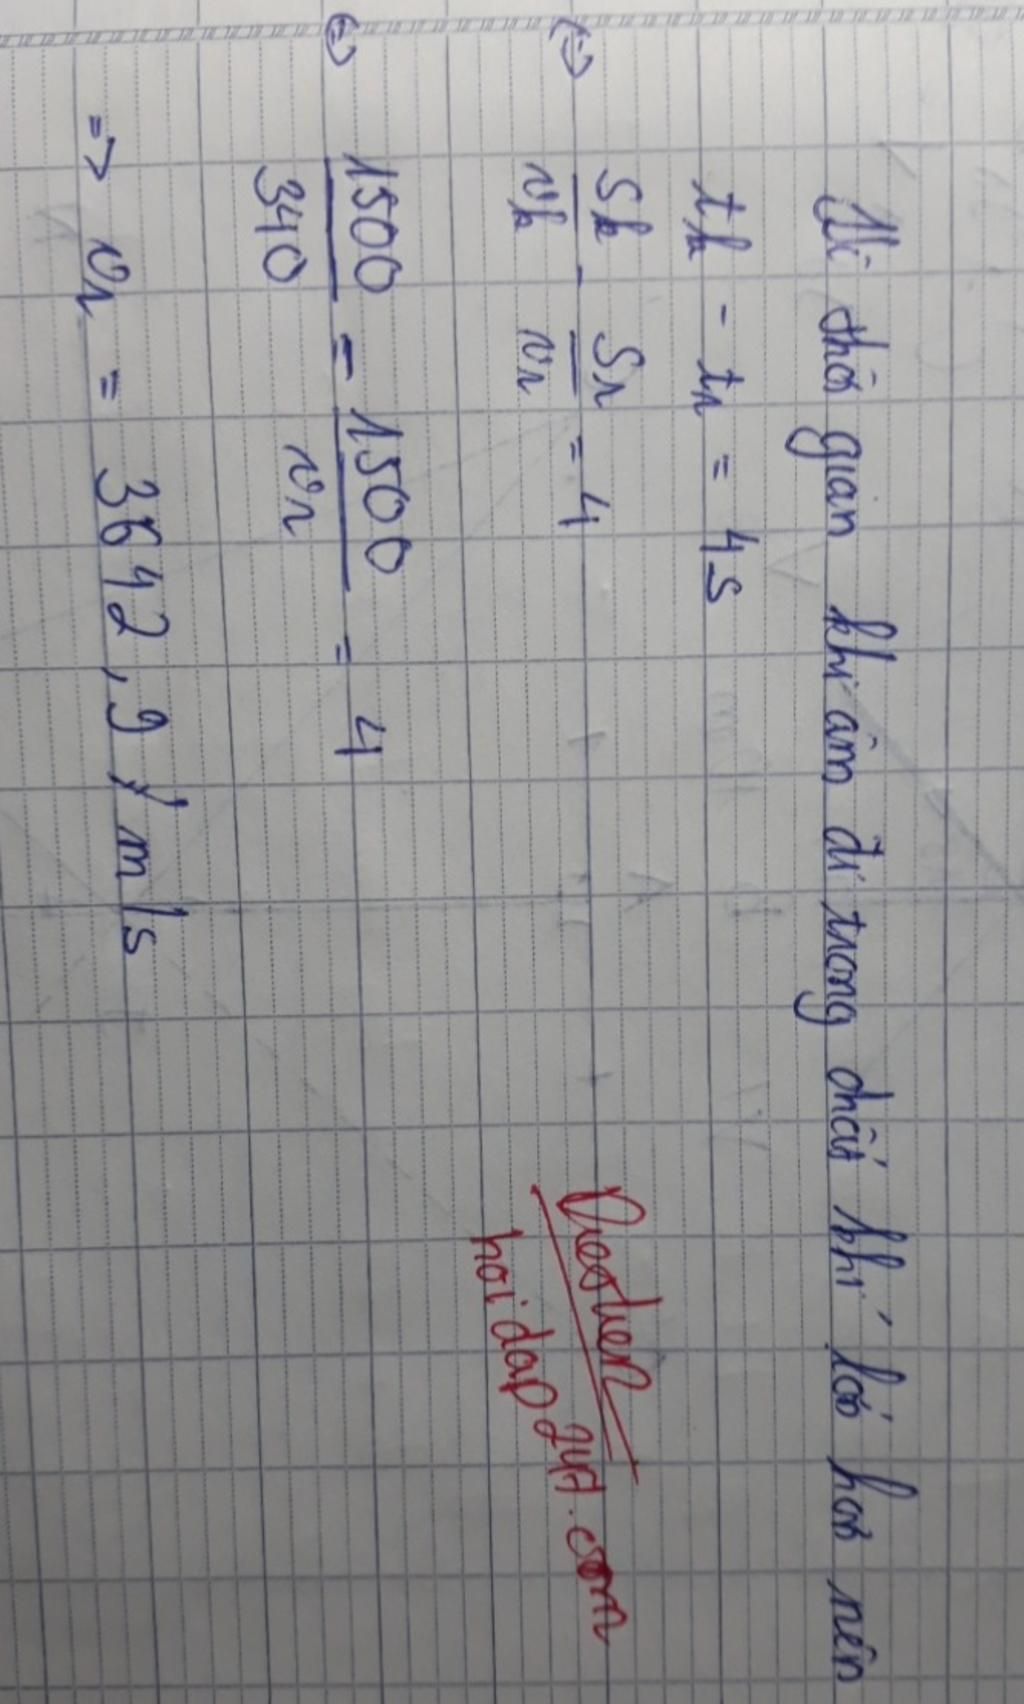 Vì thời gian khi âm đi trong chất khí lớn hơn nên
tk - tr = 4s
(=) Sk/vk - Sr/vr = 4
(=) 1500/340 = 1500/vr = 4
=> vr = 3642,9 m/s
hoidap247.com